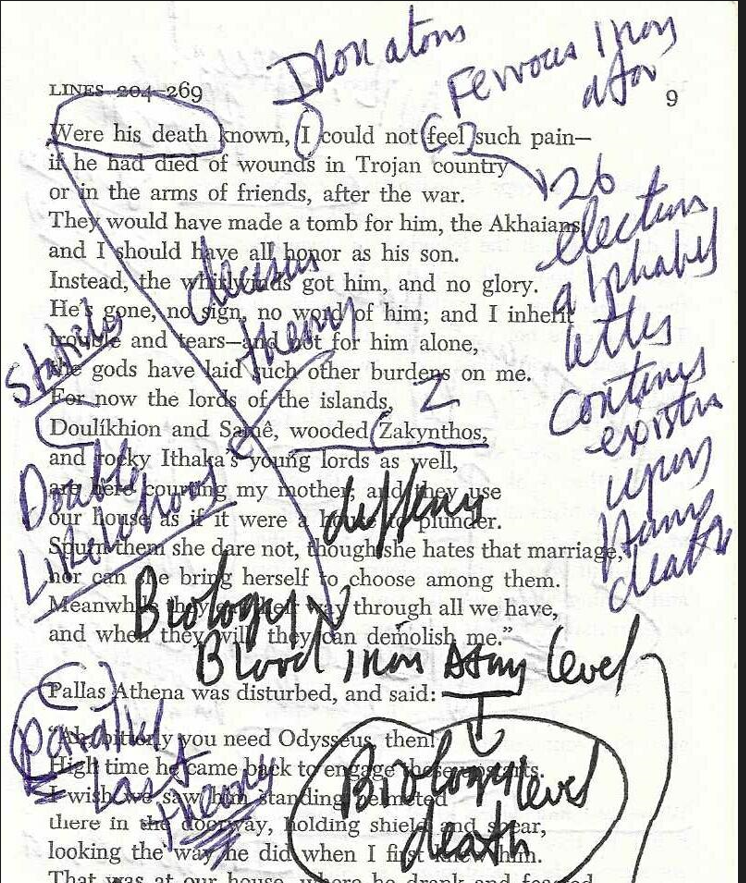 Iron atom
Ferrous Iron
atom
LINES 204–269
9
Were his death known, I could not feel such pain—
if he had died of wounds in Trojan country
or in the arms of friends, after the war.
They would have made a tomb for him, the Akhaians,
and I should have all honor as his son.
Instead, the whirlwinds got him, and no glory.
He's gone, no sign, no word of him; and I inherit
trouble and tears—and not for him alone,
the gods have laid such other burdens on me.
For now the lords of the islands,
Doulíkhion and Samê, wooded Zakynthos,
and rocky Ithaka's young lords as well,
are here courting my mother; and they use
our house as if it were a house to plunder.
Spurn them she dare not, though she hates that marriage,
nor can she bring herself to choose among them.
Meanwhile they eat their way through all we have,
and when they will, they can demolish me."
26
electrons
alphabet
letters
continues
upon
death
theory
Z
Double
Likelihood
Biology
Blood iron atom level
Pallas Athena was disturbed, and said:
"Ah, bitterly you need Odysseus, then!
High time he came back to engage these upstarts.
I wish we saw him standing helmeted
there in the doorway, holding shield and spear,
looking the way he did when I first knew him.
That was at our house, where he drank and feasted
last
theory
Biology level
death